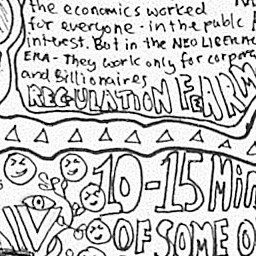 the economics worked
for everyone - in the public
interest. But in the NEO LIBERAL
ERA - They work only for corpor
and Billionaires
REGULATION FeARM
10-15 Min
OF SOME O